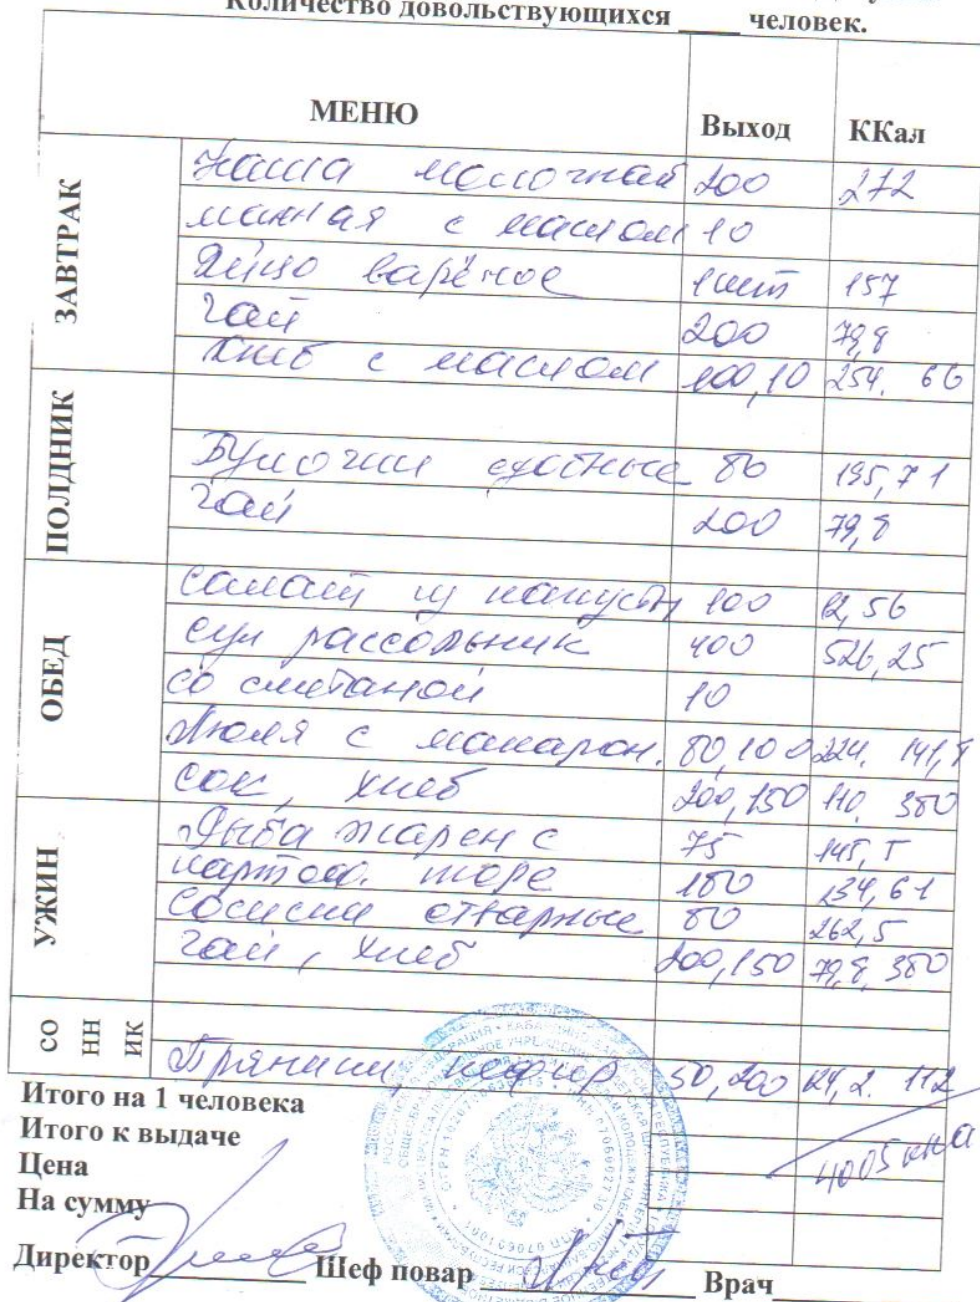 Количество довольствующихся ____ человек.
МЕНЮ Выход ККал
ЗАВТРАК
Каша молочная 200 272
манная с маслом 10
Яйцо варёное 1 шт 157
Чай 200 79,8
Хлеб с маслом 100,10 254. 66
ПОЛДНИК
Булочки сдобные 80 195,71
Чай 200 79,8
ОБЕД
Салат из капусты 100 12,56
суп рассольник 400 526,25
со сметаной 10
Люля с макарон. 80,100 224. 141,8
сок, хлеб 200,150 110, 380
УЖИН
Рыба жарен с 75 145,5
картоф. пюре 180 234,61
Сосиски отварные 80 262,5
Чай, хлеб 200,150 79,8, 380
СОННИК
Пряники, кефир 50,200 124,2. 112
Итого на 1 человека
Итого к выдаче 4005 ккал
Цена
На сумму
Директор__________ Шеф повар ______________ Врач__________